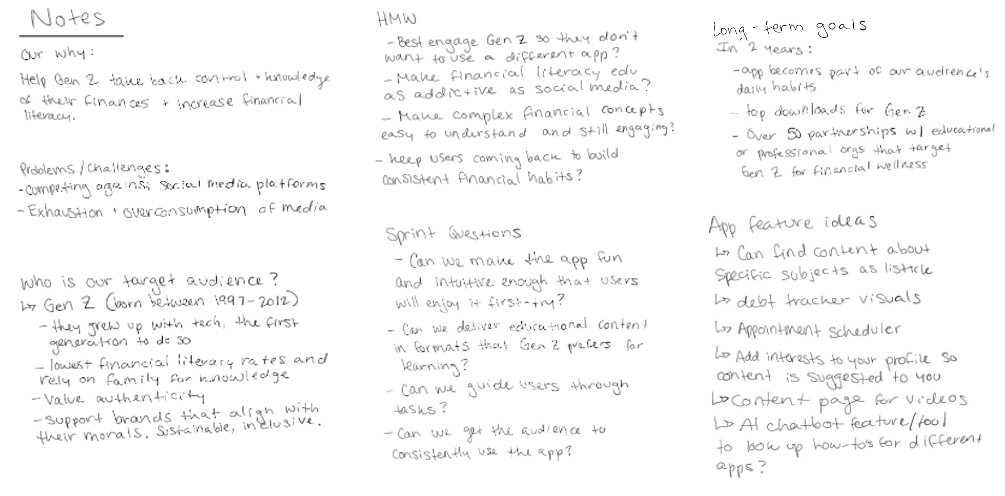 Notes
Our why:
Help Gen Z take back control + knowledge
of their finances + increase financial
literacy.
Problems/Challenges:
-Competing against social media platforms
-Exhaustion + overconsumption of media
Who is our target audience?
↳ Gen Z (born between 1997-2012)
- they grew up with tech, the first
generation to do so
- lowest financial literacy rates and
rely on family for knowledge
- Value authenticity
- Support brands that align with
their morals. Sustainable, inclusive.
HMW
- Best engage Gen Z so they don't
want to use a different app?
- Make financial literacy edu
as addictive as social media?
- Make complex financial concepts
easy to understand and still engaging?
- keep users coming back to build
consistent financial habits?
Sprint Questions
- Can we make the app fun
and intuitive enough that users
will enjoy it first-try?
- Can we deliver educational content
in formats that Gen Z prefers for
learning?
- Can we guide users through
tasks?
- Can we get the audience to
consistently use the app?
Long-term goals
In 2 years:
-app becomes part of our audience's
daily habits
- top downloads for Gen Z
- Over 50 partnerships w/ educational
or professional orgs that target
Gen Z for financial wellness
App feature ideas
↳ Can find content about
specific subjects as listicle
↳ debt tracker visuals
↳ Appointment scheduler
↳ Add interests to your profile so
content is suggested to you
↳ Content page for videos
↳ AI chatbot feature/tool
to look up how-to's for different
apps?